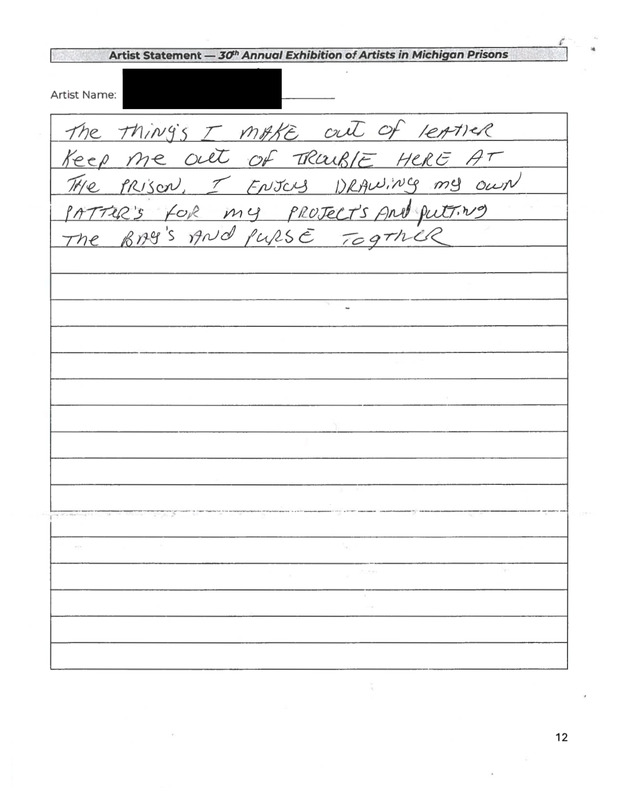 Artist Statement — 30th Annual Exhibition of Artists in Michigan Prisons
Artist Name:
The Thing's I MAKE out of leATHER
Keep me out of TROUBlE HERE AT
THe PRISON. I ENJOY DRAWiNg my OWN
PATTER'S foR my PROJECT'S And puTTiNg
THe BAg'S ANd PURSE TogTHER
12